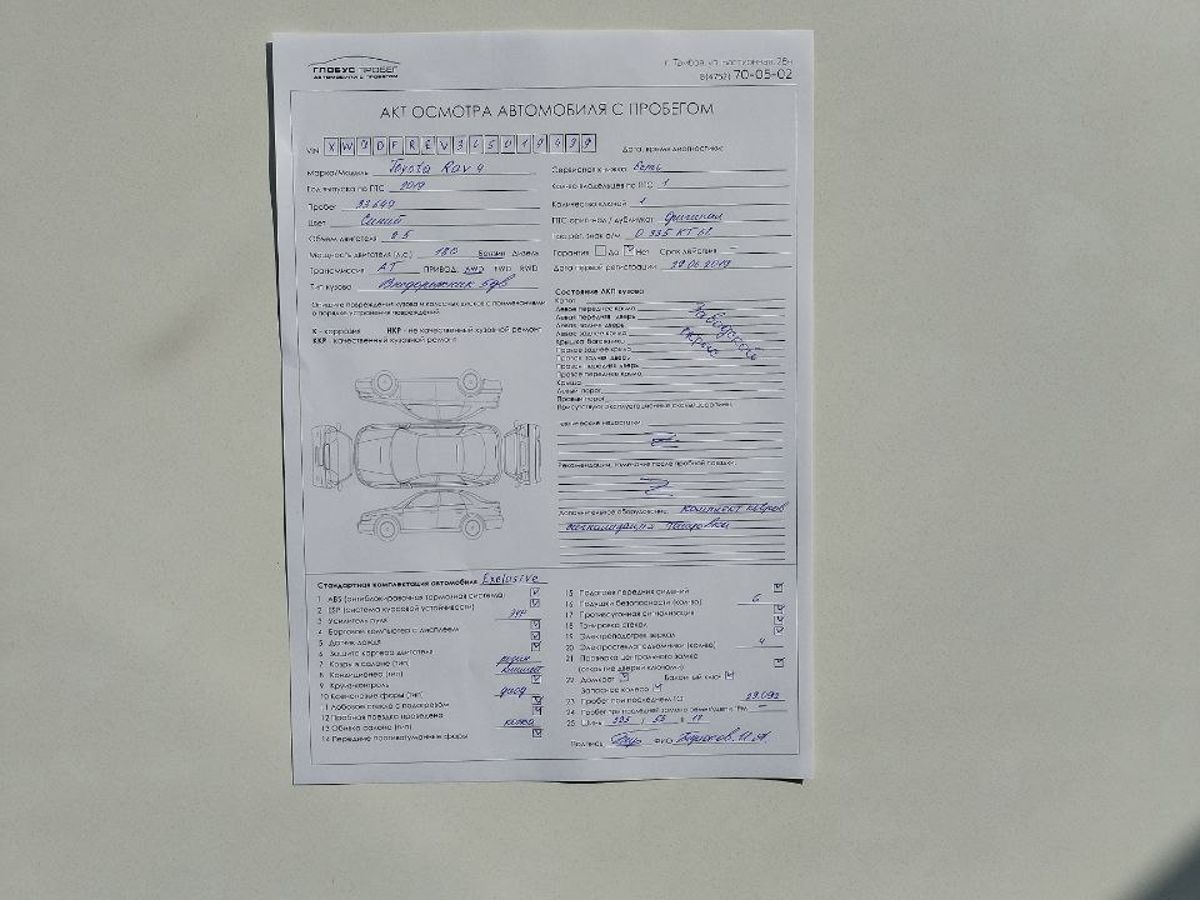 ГЛОБУС ПРОБЕГ
АВТОМОБИЛИ С ПРОБЕГОМ
8(4752) 70-05-02
АКТ ОСМОТРА АВТОМОБИЛЯ С ПРОБЕГОМ
VIN
Дата, время диагностики:
Марка/Модель Toyota Rav 4
Год выпуска по ПТС 2019
Пробег 33649
Цвет Синий
Объем двигателя 2.5
Мощность двигателя (л.с.) 180 Бензин Дизель
Трансмиссия АТ ПРИВОД: FWD RWD
Тип кузова Внедорожник 5дв
Опишите повреждения кузова и колесных дисков с примечаниями
о порядке устранения повреждений.
К - коррозия НКР - не качественный кузовной ремонт
ККР - качественный кузовной ремонт
Сервисная книжка Есть
Кол-во владельцев по ПТС 1
Количество ключей 1
ПТС оригинал / дубликат Оригинал
Гос. рег. знак а/м О 335 КТ 68
Гарантия Да Нет Срок действия —
Дата первой регистрации 29.06.2019
Состояние ЛКП кузова
Капот
Левое переднее крыло
Левая передняя дверь
Левая задняя дверь
Левое заднее крыло
Крышка багажника
Правое заднее крыло
Правая задняя дверь
Правая передняя дверь
Правое переднее крыло
Крыша
Левый порог
Правый порог
Заводской окрас
Присутствуют эксплуатационные сколы, царапины.
Технические недостатки:
Рекомендации, замечания после пробной поездки:
Дополнительное оборудование: комплект ковров
сигнализация тонировка
Стандартная комплектация автомобиля Exclusive
1 ABS (антиблокировочная тормозная система)
2 ESP (система курсовой устойчивости)
3 Усилитель руля ЭУР
4 Бортовой компьютер с дисплеем
5 Датчик дождя
6 Защита картера двигателя
7 Ковры в салоне (тип) резин
8 Кондиционер (тип) климат
9 Круиз-контроль
10 Ксеноновые фары (тип) диод
11 Лобовое стекло с подогревом
12 Пробная поездка проведена
13 Обивка салона (тип) кожа
14 Передние противотуманные фары
15 Подогрев передних сидений
16 Подушки безопасности (кол-во) 6
17 Противоугонная сигнализация
18 Тонировка стекол
19 Электроподогрев зеркал
20 Электростеклоподъемники (кол-во) 4
21 Проверка центрального замка
(открытие двери ключами)
22 Домкрат Балонный ключ
Запасное колесо
23 Пробег при последнем ТО 29.092
25 Шины 225 / 55 R 19
Подпись ФИО